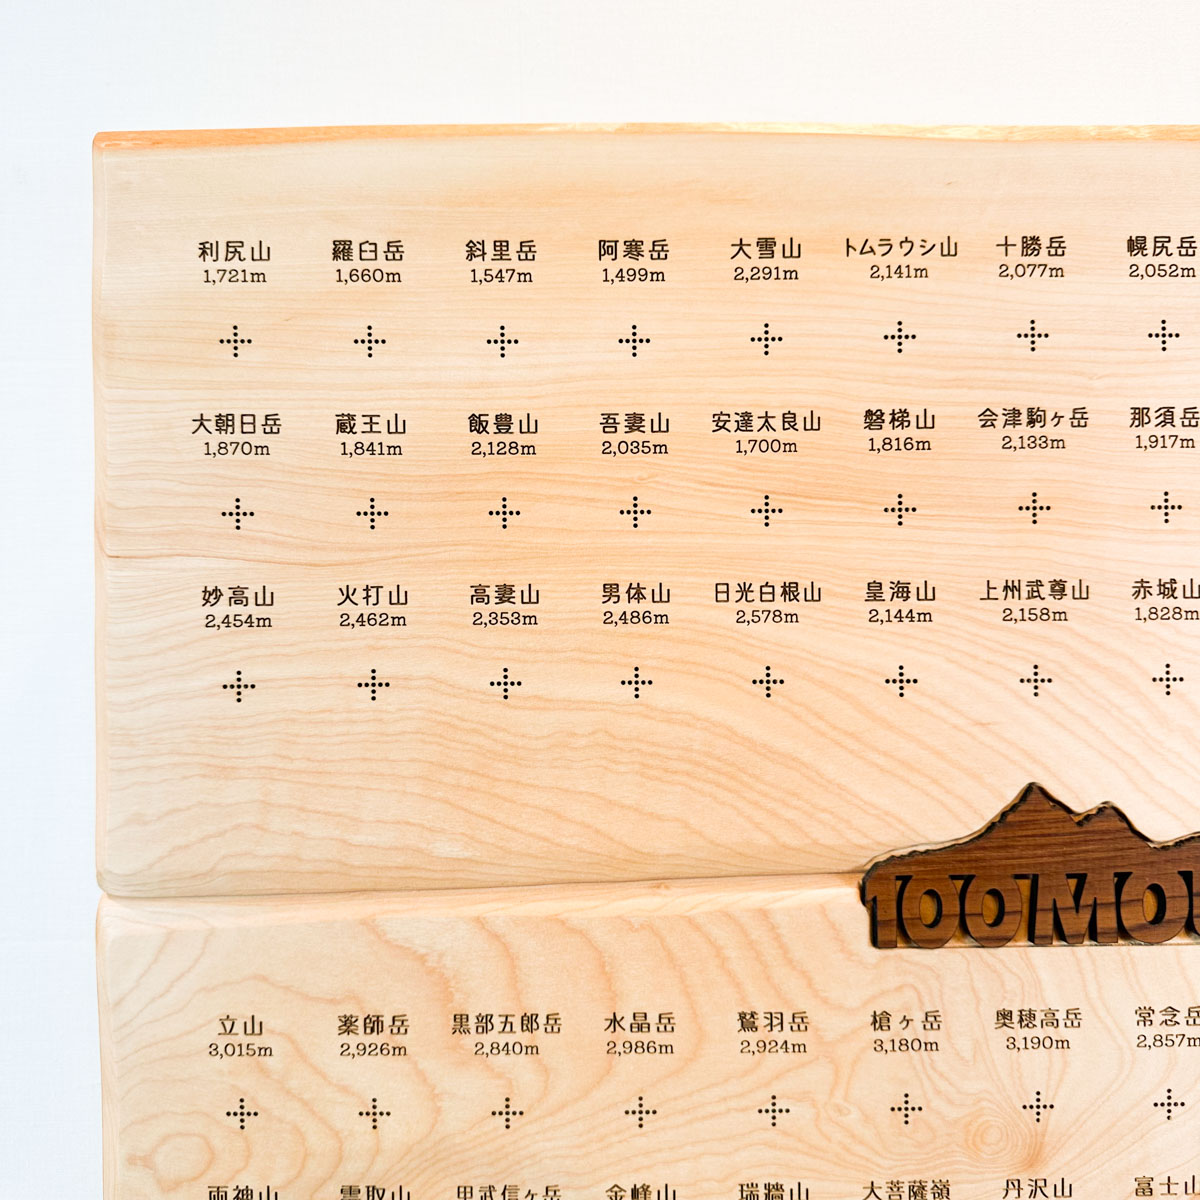 利尻山 羅臼岳 斜里岳 阿寒岳 大雪山 トムラウシ山 十勝岳 幌尻岳
1,721m 1,660m 1,547m 1,499m 2,291m 2,141m 2,077m 2,052m
大朝日岳 蔵王山 飯豊山 吾妻山 安達太良山 磐梯山 会津駒ヶ岳 那須岳
1,870m 1,841m 2,128m 2,035m 1,700m 1,816m 2,133m 1,917m
妙高山 火打山 高妻山 男体山 日光白根山 皇海山 上州武尊山 赤城山
2,454m 2,462m 2,353m 2,486m 2,578m 2,144m 2,158m 1,828m
100 MO
立山 薬師岳 黒部五郎岳 水晶岳 鷲羽岳 槍ヶ岳 奥穂高岳 常念岳
3,015m 2,926m 2,840m 2,986m 2,924m 3,180m 3,190m 2,857m
両神山 雲取山 甲武信ヶ岳 金峰山 瑞牆山 大菩薩嶺 丹沢山 富士山